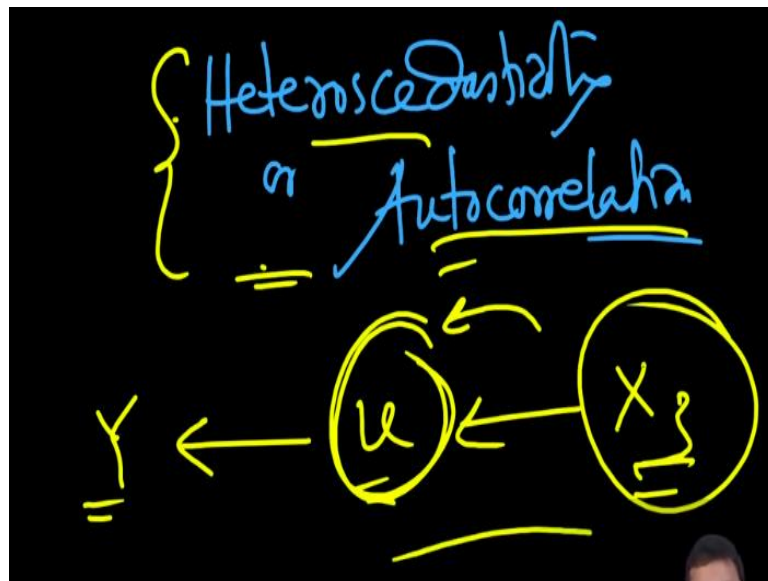 Heteroscedasticity
or
Autocorrelation
Y ← u ← X3